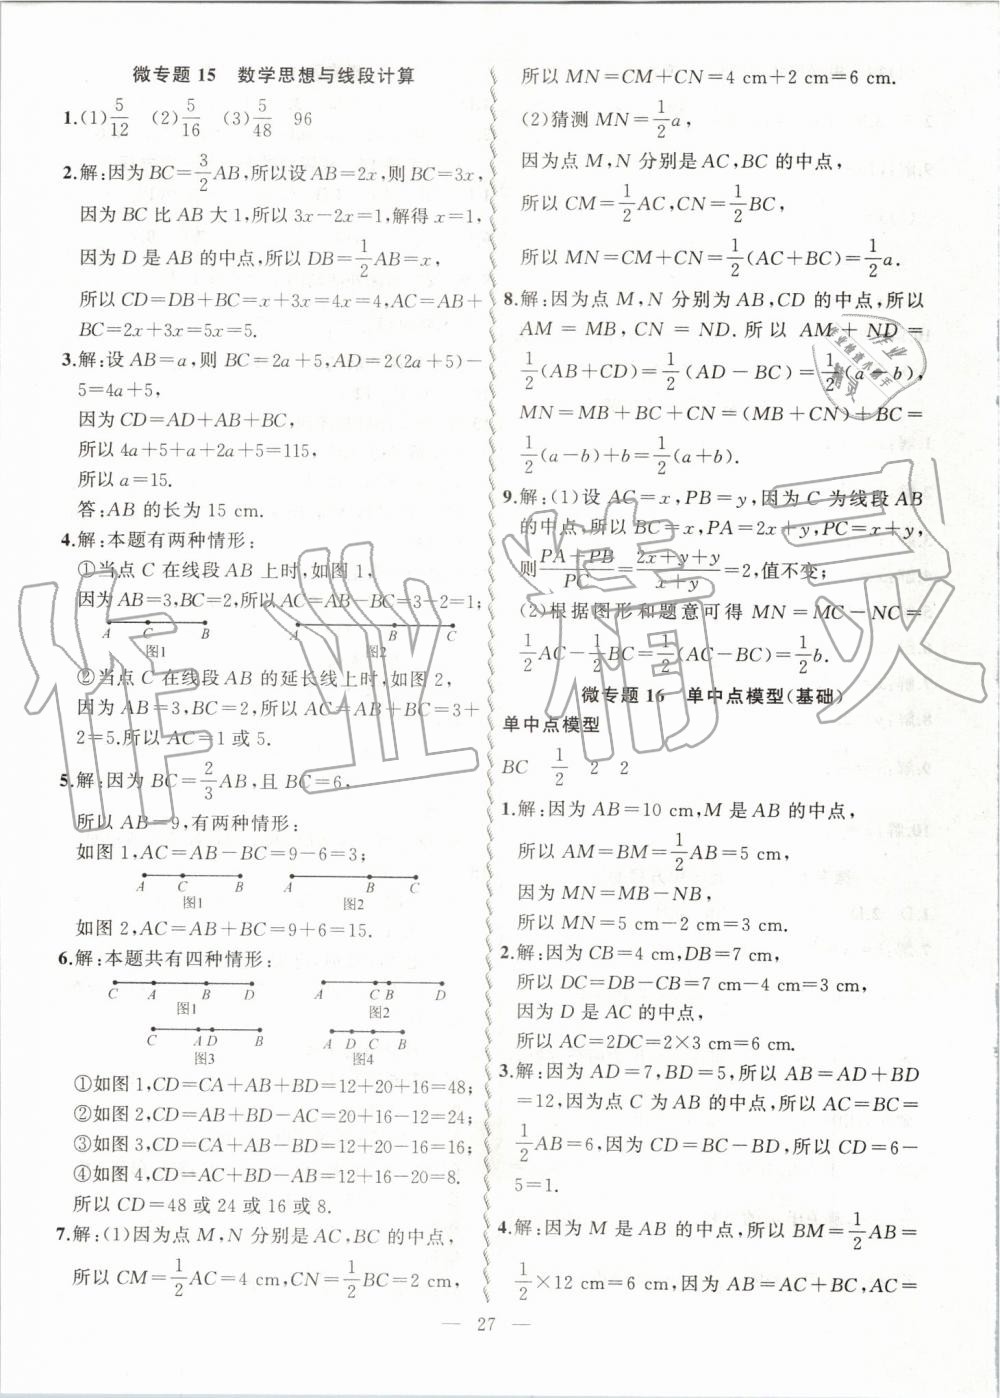 微专题 15 数学思想与线段计算
1.(1)5/12 (2)5/16 (3)5/48 96
2.解:因为 BC=3/2AB,所以设 AB=2x,则 BC=3x,
因为 BC 比 AB 大 1,所以 3x-2x=1,解得 x=1,
因为 D 是 AB 的中点,所以 DB=1/2AB=x,
所以 CD=DB+BC=x+3x=4x=4,AC=AB+
BC=2x+3x=5x=5.
3.解:设 AB=a,则 BC=2a+5,AD=2(2a+5)-
5=4a+5,
因为 CD=AD+AB+BC,
所以 4a+5+a+2a+5=115,
所以 a=15.
答:AB 的长为 15 cm.
4.解:本题有两种情形:
①当点 C 在线段 AB 上时,如图 1,
因为 AB=3,BC=2,所以 AC=AB-BC=3-2=1;
A C B A B C
图1 图2
②当点 C 在线段 AB 的延长线上时,如图 2,
因为 AB=3,BC=2,所以 AC=AB+BC=3+
2=5.所以 AC=1 或 5.
5.解:因为 BC=2/3AB,且 BC=6,
所以 AB=9,有两种情形:
如图 1,AC=AB-BC=9-6=3;
A C B A B C
图1 图2
如图 2,AC=AB+BC=9+6=15.
6.解:本题共有四种情形:
C A B D A C B D
图1 图2
C A D B A D C B
图3 图4
①如图 1,CD=CA+AB+BD=12+20+16=48;
②如图 2,CD=AB+BD-AC=20+16-12=24;
③如图 3,CD=CA+AB-BD=12+20-16=16;
④如图 4,CD=AC+BD-AB=12+16-20=8.
所以 CD=48 或 24 或 16 或 8.
7.解:(1)因为点 M,N 分别是 AC,BC 的中点,
所以 CM=1/2AC=4 cm,CN=1/2BC=2 cm,
所以 MN=CM+CN=4 cm+2 cm=6 cm.
(2)猜测 MN=1/2a,
因为点 M,N 分别是 AC,BC 的中点,
所以 CM=1/2AC,CN=1/2BC,
所以 MN=CM+CN=1/2(AC+BC)=1/2a.
8.解:因为点 M,N 分别为 AB,CD 的中点,所以
AM=MB,CN=ND.所以 AM+ND=
1/2(AB+CD)=1/2(AD-BC)=1/2(a-b),
MN=MB+BC+CN=(MB+CN)+BC=
1/2(a-b)+b=1/2(a+b).
9.解:(1)设 AC=x,PB=y,因为 C 为线段 AB
的中点,所以 BC=x,PA=2x+y,PC=x+y,
则(PA+PB)/PC=(2x+y+y)/(x+y)=2,值不变;
(2)根据图形和题意可得 MN=MC-NC=
1/2AC-1/2BC=1/2(AC-BC)=1/2b.
微专题 16 单中点模型(基础)
单中点模型
BC 1/2 2 2
1.解:因为 AB=10 cm,M 是 AB 的中点,
所以 AM=BM=1/2AB=5 cm,
因为 MN=MB-NB,
所以 MN=5 cm-2 cm=3 cm.
2.解:因为 CB=4 cm,DB=7 cm,
所以 DC=DB-CB=7 cm-4 cm=3 cm,
因为 D 是 AC 的中点,
所以 AC=2DC=2×3 cm=6 cm.
3.解:因为 AD=7,BD=5,所以 AB=AD+BD
=12,因为点 C 为 AB 的中点,所以 AC=BC=
1/2AB=6,因为 CD=BC-BD,所以 CD=6-
5=1.
4.解:因为 M 是 AB 的中点,所以 BM=1/2AB=
1/2×12 cm=6 cm,因为 AB=AC+BC,AC=
— 27 —
作业精灵